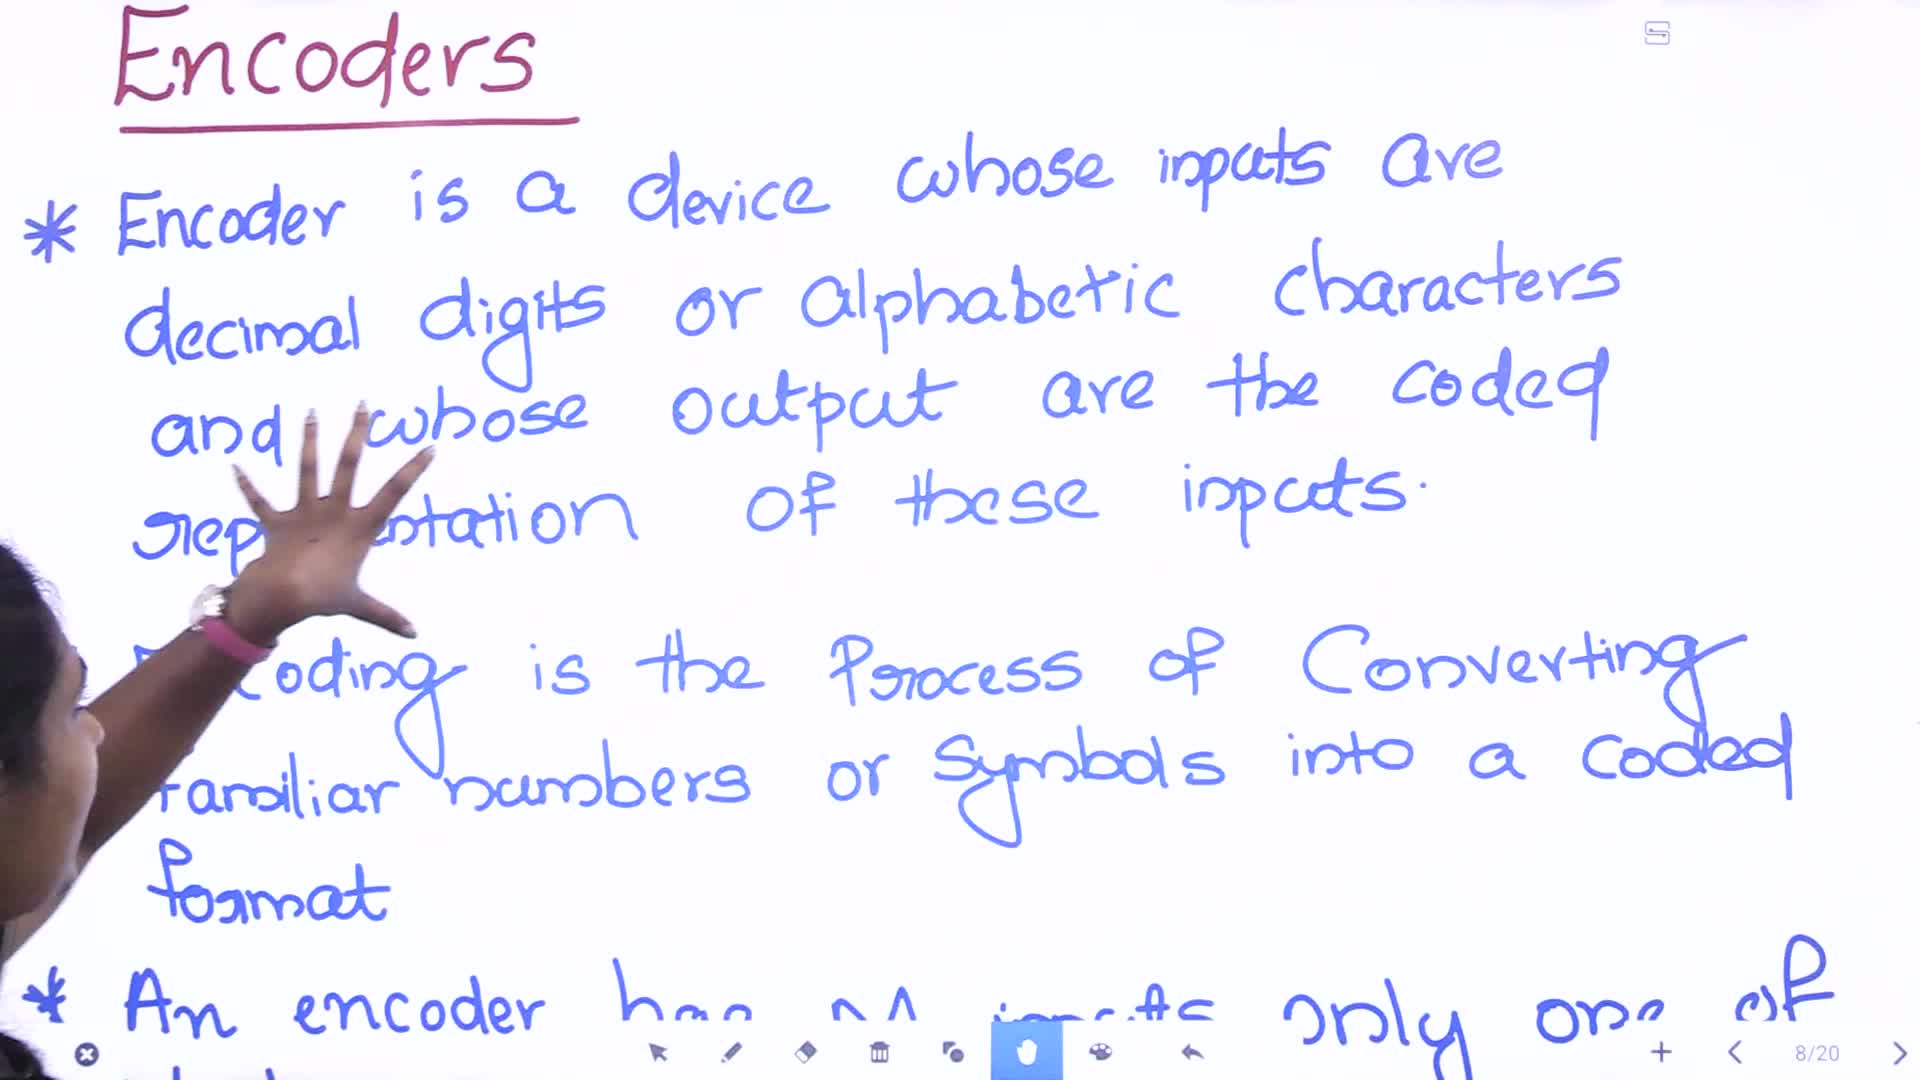 Encoders
* Encoder is a device whose inputs are
decimal digits or alphabetic characters
and whose output are the coded
of these inputs.
is the Process of Converting
familiar numbers or Symbols into a coded
format
* An encoder has M inputs only one of
8/20